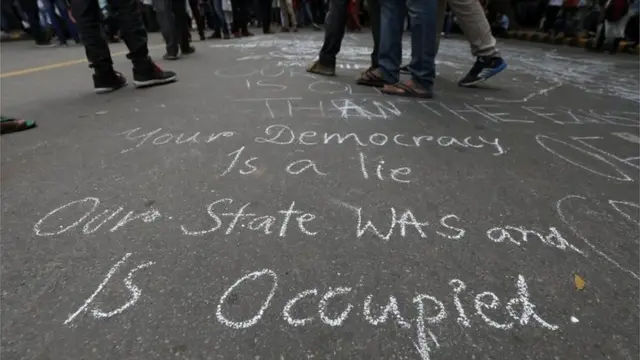 IS
THAN THE
Your Democracy
Is a lie
Our State WAS and
Is Occupied.